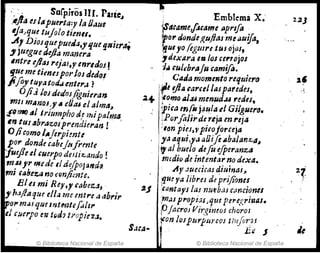 Suspiros III. Parte,
esta es la puerta: y la llaue
esa, que tu solo tienes.
Ay Dios que pueda, y que quiera
y juegue desta manera
entre essas rejas, y enredos!
que me tienes por los dedos
si soy tuya toda entera?
O si à los dedos siguieran
mis manos, y a ellas el alma,
como al triumpho de mi palma
en tus abrazos prendieran!
O si como la serpiente
por donde cabe su frente
fuesse el cuerpo deslizando!
mas ay me le el despojando
mi cabeza no consiente.
El es mi Rey, y cabeza,
y hasta que ella me entre a abrir
por mas que intente salir
el cuerpo en todo tropieza.
Saca-
Emblema X. 223
Sacame, sacame aprisa
por donde gustas me auisa,
que yo seguire tus ojos,
y dexara en los cerrojos
la culebra su camisa.
Cada momento requiero
de esta carcel las paredes,
como alas menudas redes,
pica en su jaula el Gilguero.
Por salir de reja en reja
con pies, y pico forceja
ya aqui, ya alli se abalanza,
y al buelo de su esperanza
medio de intentar no dexa.
Ay auecicas diuinas,
que ya libres de prisiones
cantays las nuebas canciones
mas propias, que peregrinas.
O sacros Virgineos choros
con los purpureos thesoros
Ee 3 de
24
25
26
27
© Biblioteca Nacional de España
© Biblioteca Nacional de España